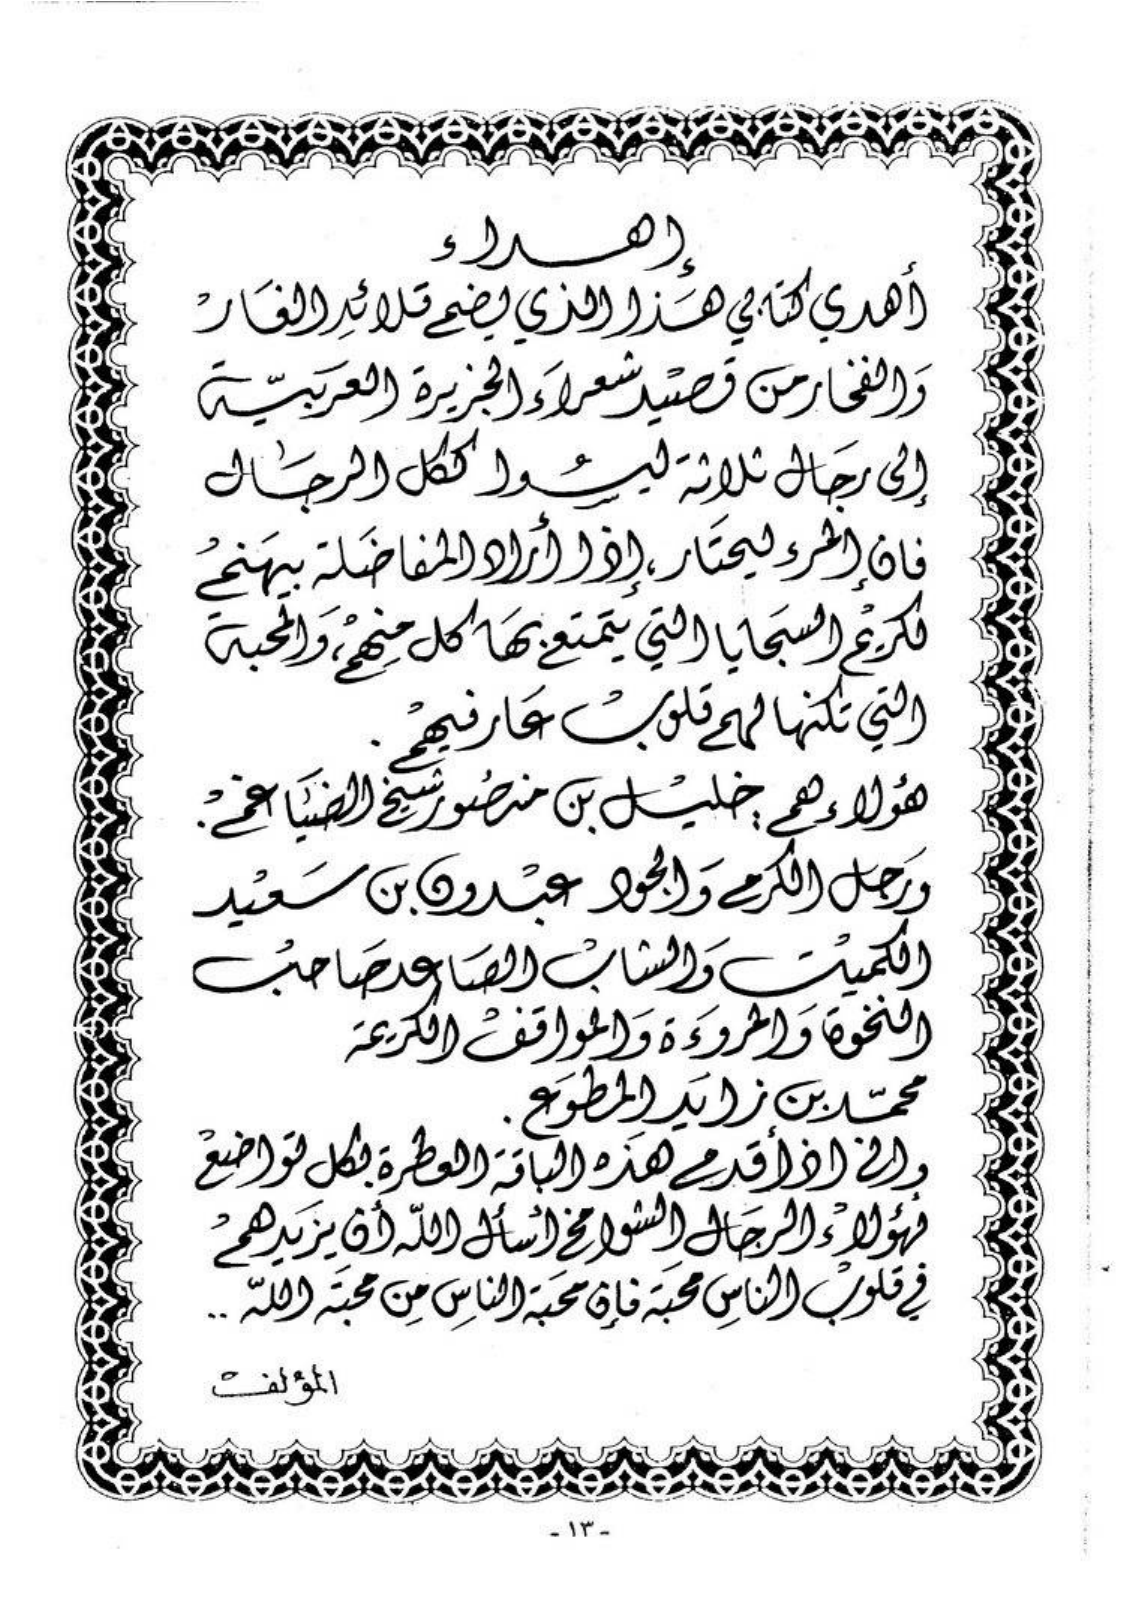 إهداء
أهدي كتابي هذا الذي يضم قلائد الغار
والفخار من قصيد شعراء الجزيرة العربية
إلى رجال ثلاثة ليسوا ككل الرجال
فان المرء ليحتار، إذا أراد المفاضلة بينهم
لكريم السجايا التي يتمتع بها كل منهم، والمحبة
التي تكنها لهم قلوب عارفيهم.
هؤلاء هم: خليل بن منصور شيخ الضياغم.
ورجل الكرم والجود عبدون بن سعيد
الكميت والشاب الصاعد صاحب
النخوة والمروءة والمواقف الكريمة
محمد بن زايد المطوع.
واني اذ أقدم هذه الباقة العطرة بكل تواضع
لهؤلاء الرجال الشوامخ أسأل الله أن يزيدهم
في قلوب الناس محبة فإن محبة الناس من محبة الله ..
المؤلف
- ١٣ -